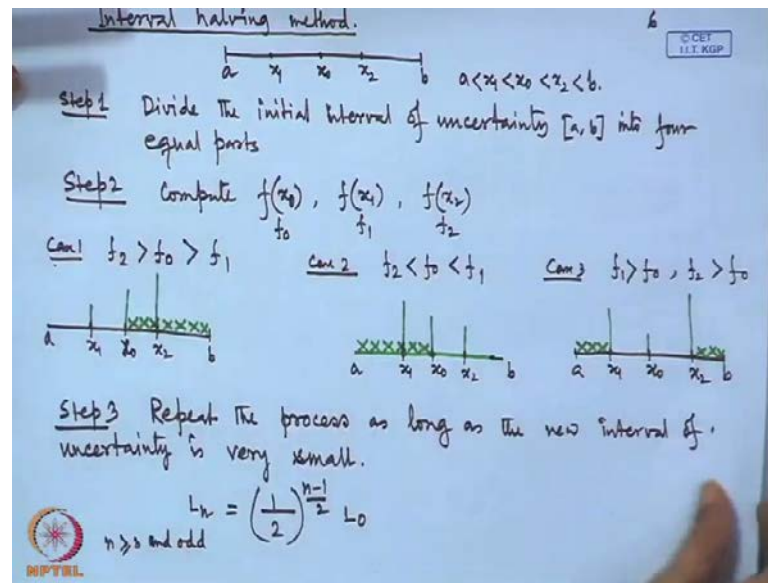 Interval halving method.
6
© CET
I.I.T. KGP
a x₁ x₀ x₂ b
a < x₁ < x₀ < x₂ < b.
Step 1 Divide the initial interval of uncertainty [a, b] into four
equal parts
Step 2 Compute f(x₀), f(x₁), f(x₂)
f₀ f₁ f₂
Case 1 f₂ > f₀ > f₁
Case 2 f₂ < f₀ < f₁
Case 3 f₁ > f₀, f₂ > f₀
a x₁ x₀ x₂ b
a x₁ x₀ x₂ b
a x₁ x₀ x₂ b
Step 3 Repeat the process as long as the new interval of
uncertainty is very small.
Lₙ = (1/2)^((n-1)/2) L₀
n ≥ 3 and odd
NPTEL